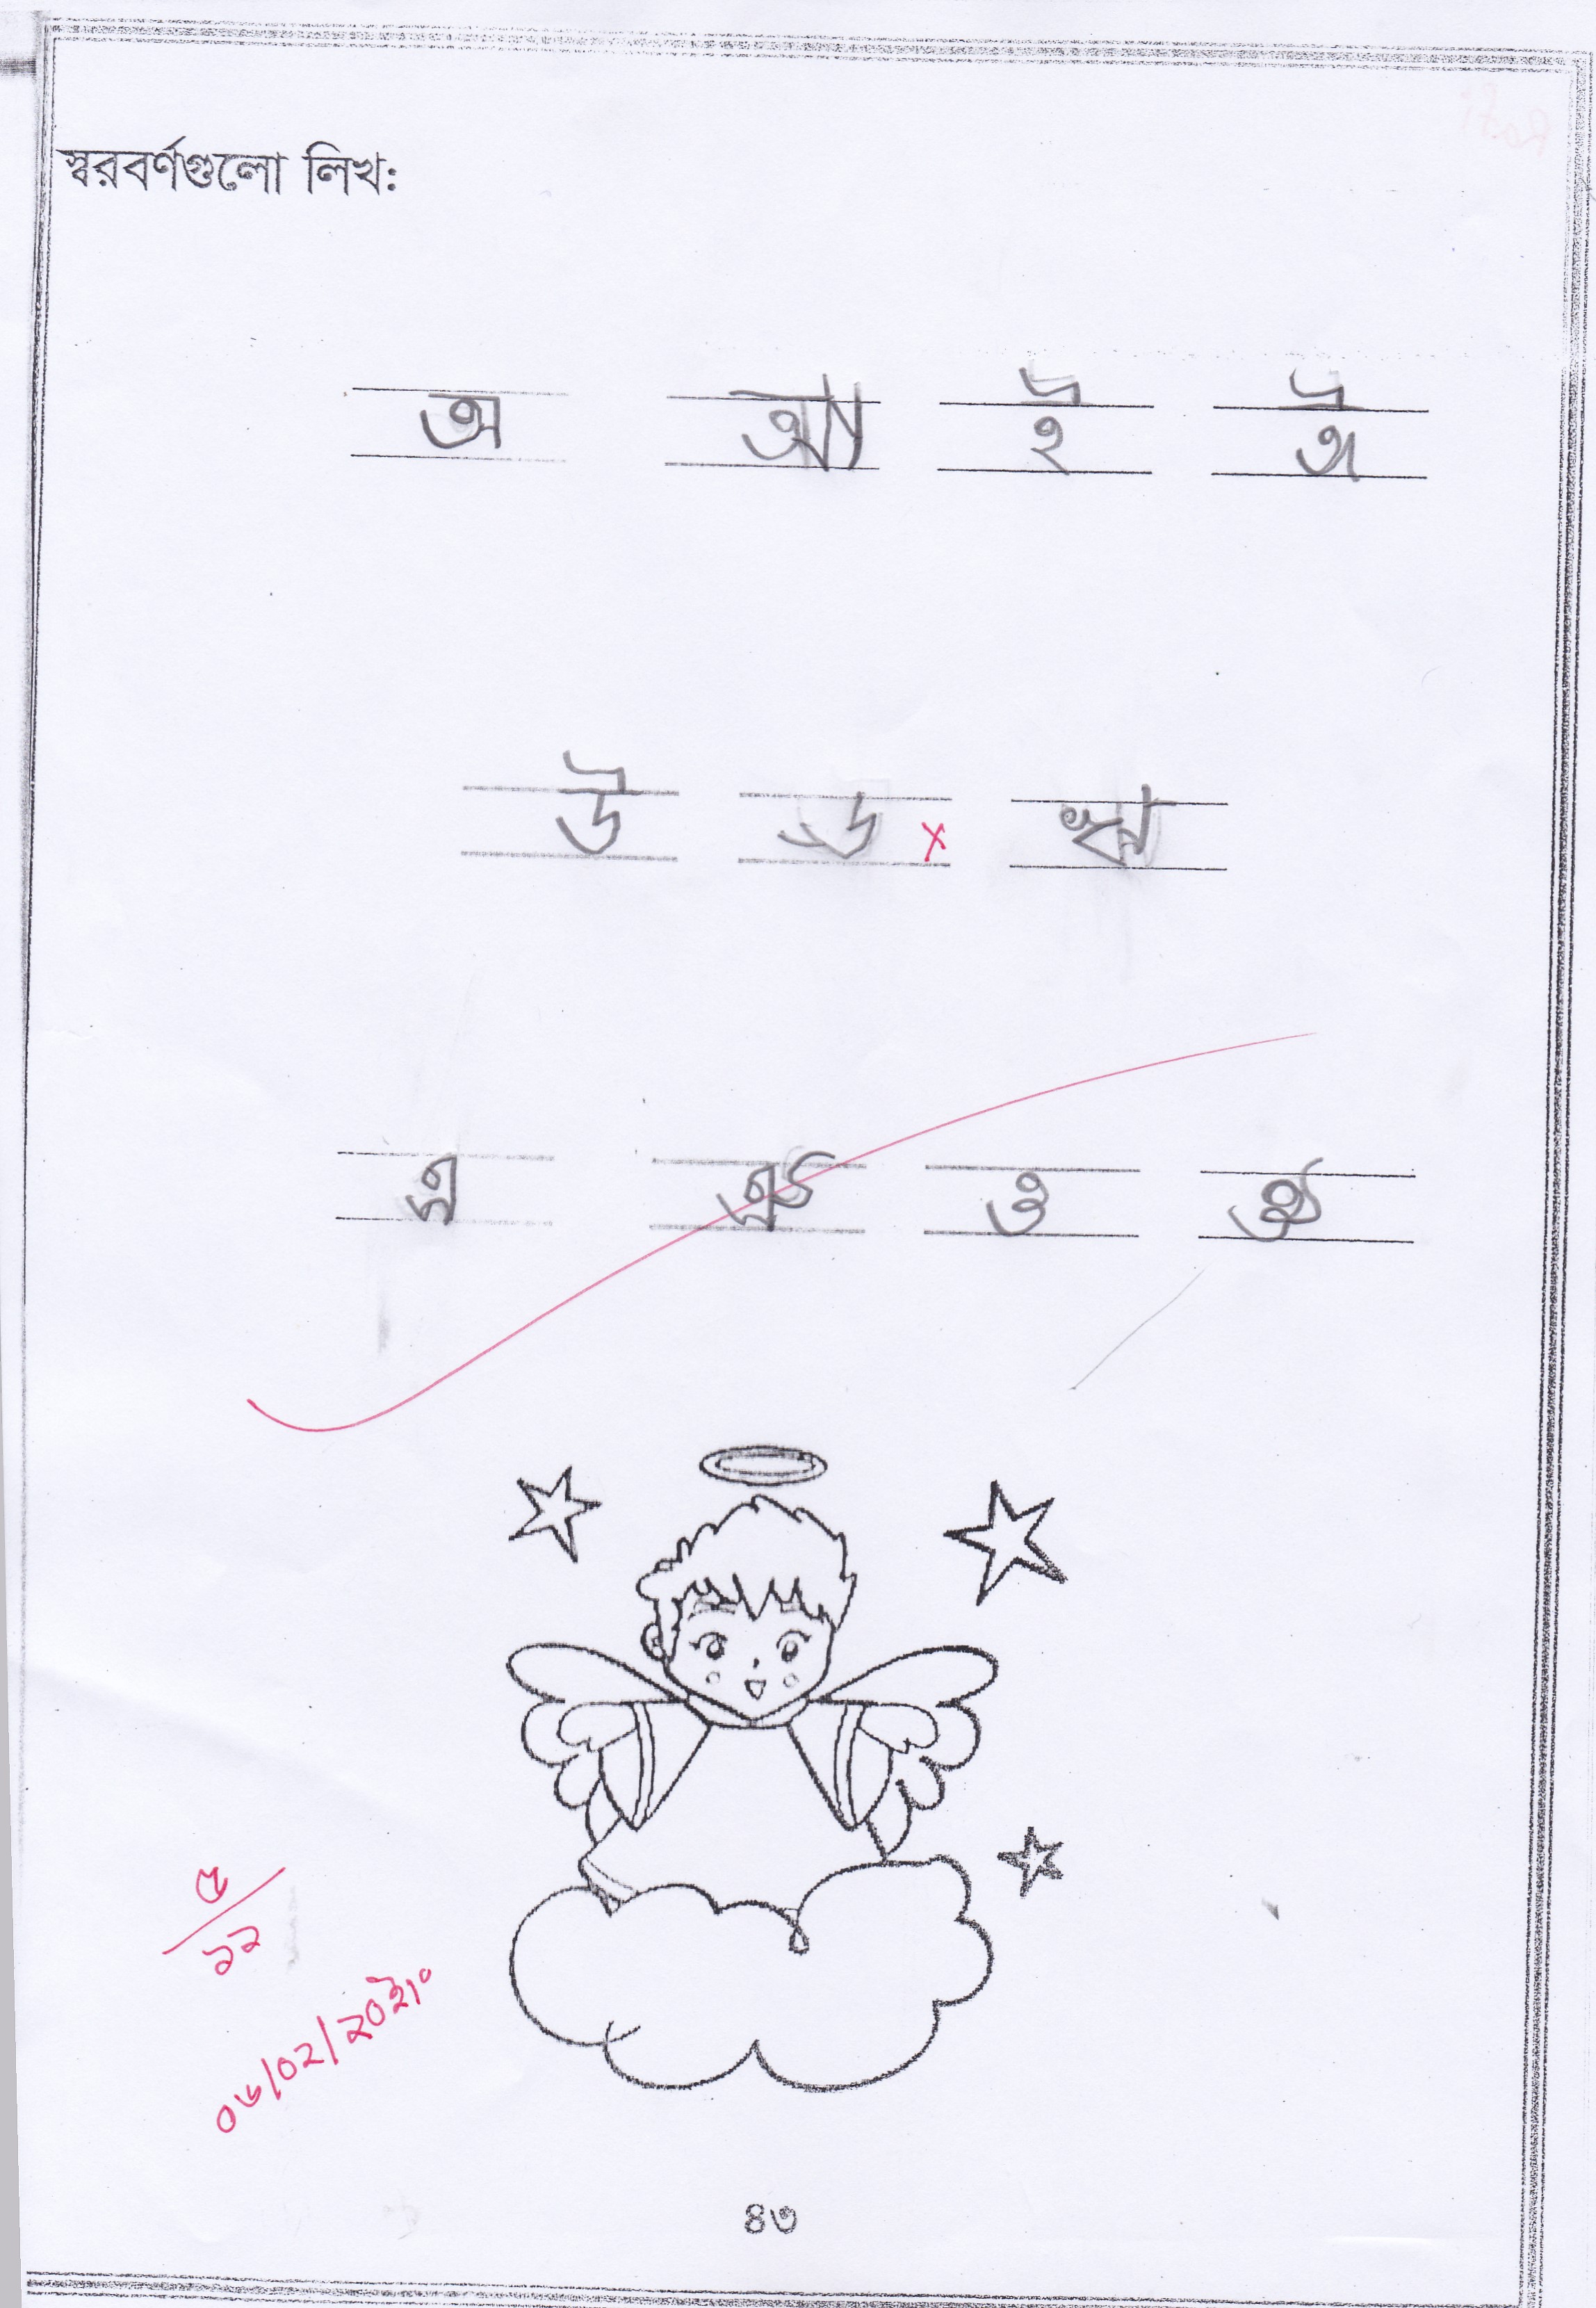 স্বরবর্ণগুলো লিখ:
অ আ ই ঈ
উ ঊ x ঋ
এ ঐ ও ঔ
৫
১২
০৬/০২/২০২১
৪৩